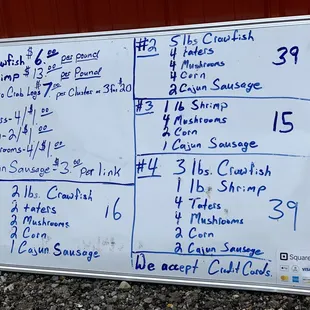 wfish $6.00 per pound
imp $13.00 per Pound
o Crab Legs $7.00 per Cluster or 3 for $20
rs-4/$1.00
n-2/$1.00
rooms-4/$1.00
n Sausage-$3.00 per link
2 lbs. Crawfish
2 taters
2 Mushrooms
2 Corn
1 Cajun Sausage
16
#2 5 lbs Crawfish
4 taters
4 Mushrooms
4 Corn
2 Cajun Sausage
39
#3 1 lb Shrimp
4 Mushrooms
2 Corn
1 Cajun Sausage
15
#4 3 lbs. Crawfish
1 lb. Shrimp
4 Taters
4 Mushrooms
2 Corn
2 Cajun Sausage
39
We accept Credit Cards.
Square
VISA